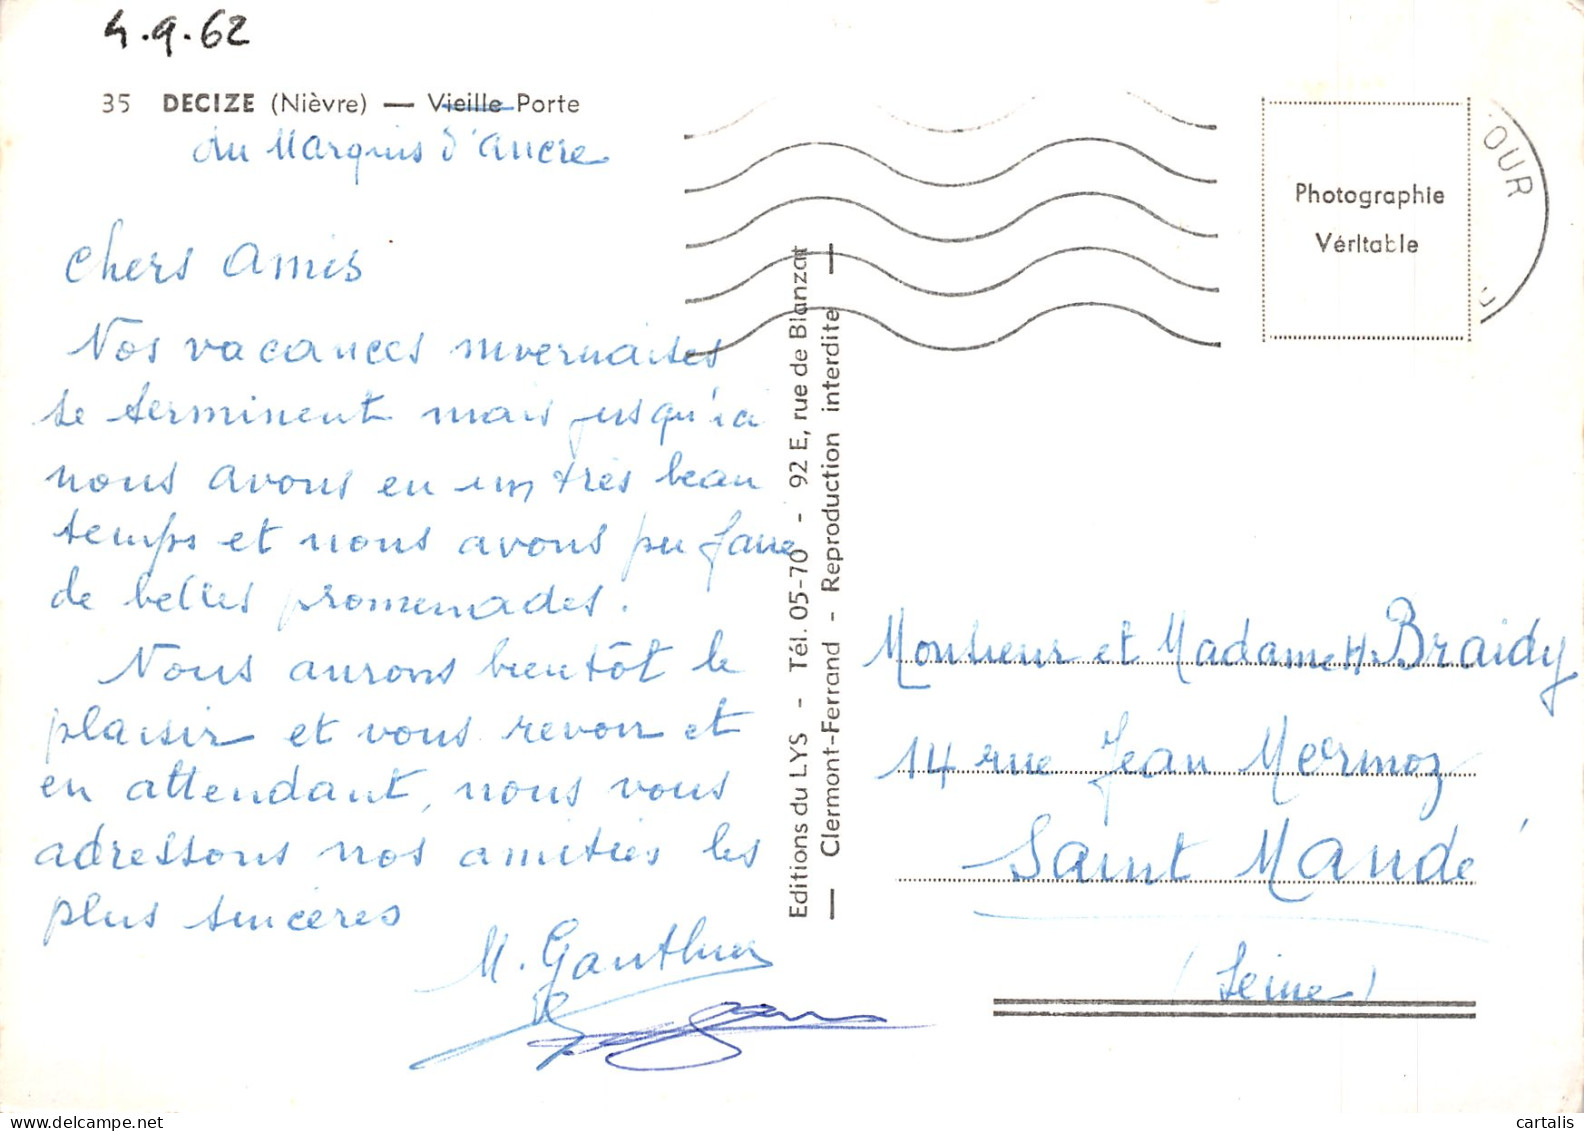 4.9.62
35 DECIZE (Nièvre) — Vieille Porte
du Marquis d'Ancre
Chers Amis
Nos vacances nivernaises
se terminent mais jusqu'ici
nous avons eu un très beau
temps et nous avons pu faire
de belles promenades.
Nous aurons bientôt le
plaisir et vous revoir et
en attendant, nous vous
adressons nos amitiés les
plus sincères
M. Gauthier
Editions du LYS - Tél. 05-70 - 92 E, rue de Blanzat
— Clermont-Ferrand - Reproduction interdite —
OUR
Photographie
Véritable
Monsieur et Madame H. Braidy
14 rue Jean Mermoz
Saint Mandé
(Seine)
cartalis